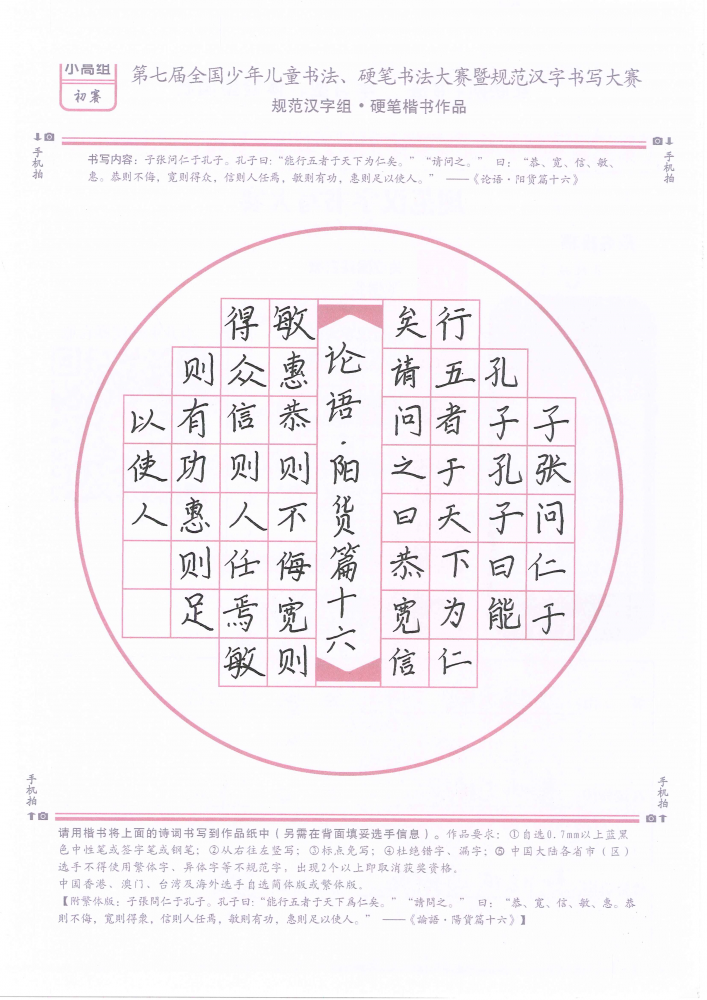 小高组
初赛
第七届全国少年儿童书法、硬笔书法大赛暨规范汉字书写大赛
规范汉字组·硬笔楷书作品
手机拍
手机拍
书写内容：子张问仁于孔子。孔子曰：“能行五者于天下为仁矣。”“请问之。” 曰：“恭、宽、信、敏、
惠。恭则不侮，宽则得众，信则人任焉，敏则有功，惠则足以使人。” ——《论语·阳货篇十六》
子张问仁于
孔子孔子曰能
行五者于天下为仁
矣请问之曰恭宽信
论语·阳货篇十六
敏惠恭则不侮宽则
得众信则人任焉敏
则有功惠则足
以使人
手机拍
手机拍
请用楷书将上面的诗词书写到作品纸中（另需在背面填妥选手信息）。作品要求：①自选0.7mm以上蓝黑
色中性笔或签字笔或钢笔；②从右往左竖写；③标点免写；④杜绝错字、漏字；⑤中国大陆各省市（区）
选手不得使用繁体字、异体字等不规范字，出现2个以上即取消获奖资格。
中国香港、澳门、台湾及海外选手自选简体版或繁体版。
【附繁体版：子張問仁于孔子。孔子曰：“能行五者于天下爲仁矣。”“請問之。” 曰：“恭、寬、信、敏、惠。恭
則不侮，寬則得衆，信則人任焉，敏則有功，惠則足以使人。” ——《論語·陽貨篇十六》】